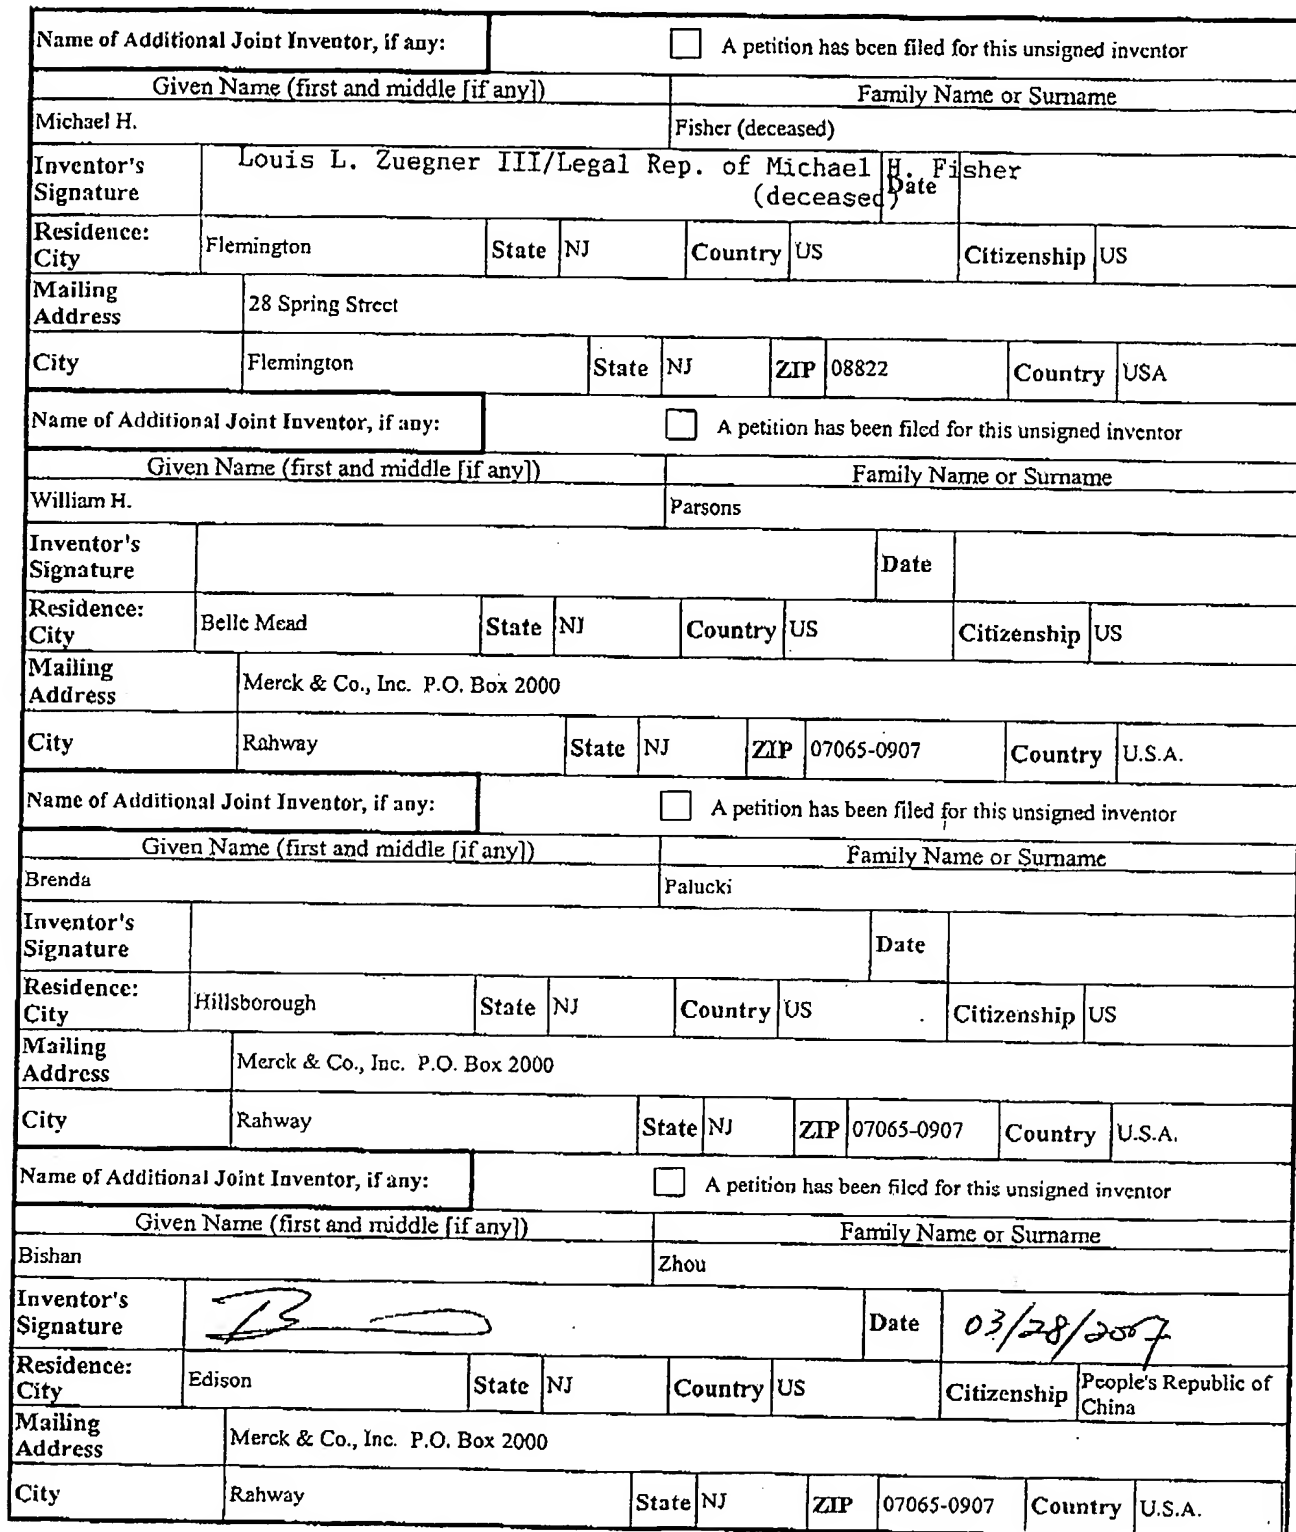 Name of Additional Joint Inventor, if any: A petition has been filed for this unsigned inventor
Given Name (first and middle [if any]) Family Name or Surname
Michael H. Fisher (deceased)
Inventor's Signature Louis L. Zuegner III/Legal Rep. of Michael H. Fisher
(deceased) Date
Residence: City Flemington State NJ Country US Citizenship US
Mailing Address 28 Spring Street
City Flemington State NJ ZIP 08822 Country USA
Name of Additional Joint Inventor, if any: A petition has been filed for this unsigned inventor
Given Name (first and middle [if any]) Family Name or Surname
William H. Parsons
Inventor's Signature Date
Residence: City Belle Mead State NJ Country US Citizenship US
Mailing Address Merck & Co., Inc. P.O. Box 2000
City Rahway State NJ ZIP 07065-0907 Country U.S.A.
Name of Additional Joint Inventor, if any: A petition has been filed for this unsigned inventor
Given Name (first and middle [if any]) Family Name or Surname
Brenda Palucki
Inventor's Signature Date
Residence: City Hillsborough State NJ Country US Citizenship US
Mailing Address Merck & Co., Inc. P.O. Box 2000
City Rahway State NJ ZIP 07065-0907 Country U.S.A.
Name of Additional Joint Inventor, if any: A petition has been filed for this unsigned inventor
Given Name (first and middle [if any]) Family Name or Surname
Bishan Zhou
Inventor's Signature Date 03/28/2007
Residence: City Edison State NJ Country US Citizenship People's Republic of China
Mailing Address Merck & Co., Inc. P.O. Box 2000
City Rahway State NJ ZIP 07065-0907 Country U.S.A.